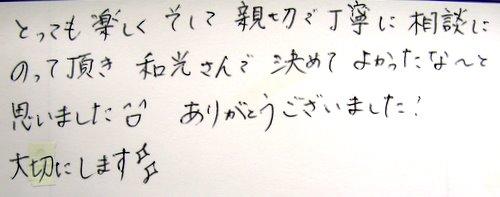 とっても楽しく そして 親切で丁寧に 相談に
のって頂き 和光さんで 決めて よかったな〜と
思いました ありがとうございました!
大切にします